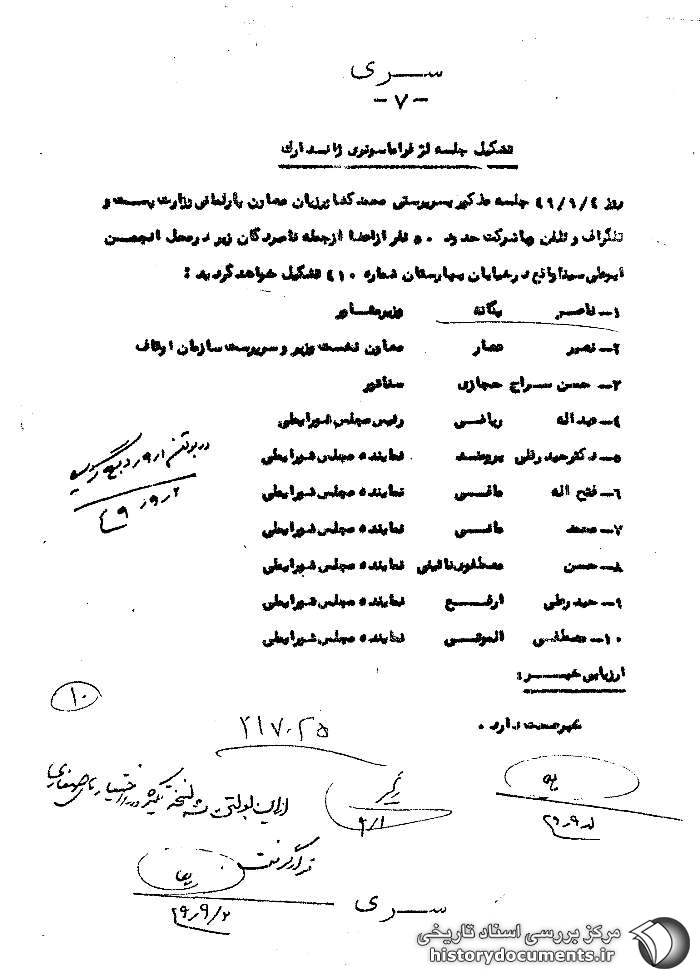 سری
-۷-
تشکیل جلسه لژ فراماسونری ژاندارک
روز ۴۹/۹/۴ جلسه مذکور بسرپرستی محمد کشاورزیان معاون پارلمانی وزارت پست و
تلگراف و تلفن و باشرکت حدود ۵۰ نفر از اعضا از جمله نامبردگان زیر در محل انجمن
ابوعلی سینا واقع در خیابان بهارستان شماره ۴۱۰ تشکیل خواهد گردید :
۱- ناصر یگانه وزیر مشاور
۲- نصیر عصار معاون نخست وزیر و سرپرست سازمان اوقاف
۳- حسن سراج حجازی سناتور
۴- عبداله ریاضی رئیس مجلس شورایملی
۵- دکتر حیدرقلی برومند نماینده مجلس شورایملی
۶- فتح اله مافی نماینده مجلس شورایملی
۷- محمد مافی نماینده مجلس شورایملی
۸- حسن مصطفوی نائینی نماینده مجلس شورایملی
۹- حیدرعلی ارفع نماینده مجلس شورایملی
۱۰- مصطفی الموتی نماینده مجلس شورایملی
ارزیابی خبر :
خبر صحت دارد .
در بولتن
۴۹
۱۰
۲۱۷۰۲۵
از این بولتن نسخه دیگر در اختیار
قرار گرفت
۹/۱
۴۹/۹/۲
سری
مرکز بررسی اسناد تاریخی
historydocuments.ir